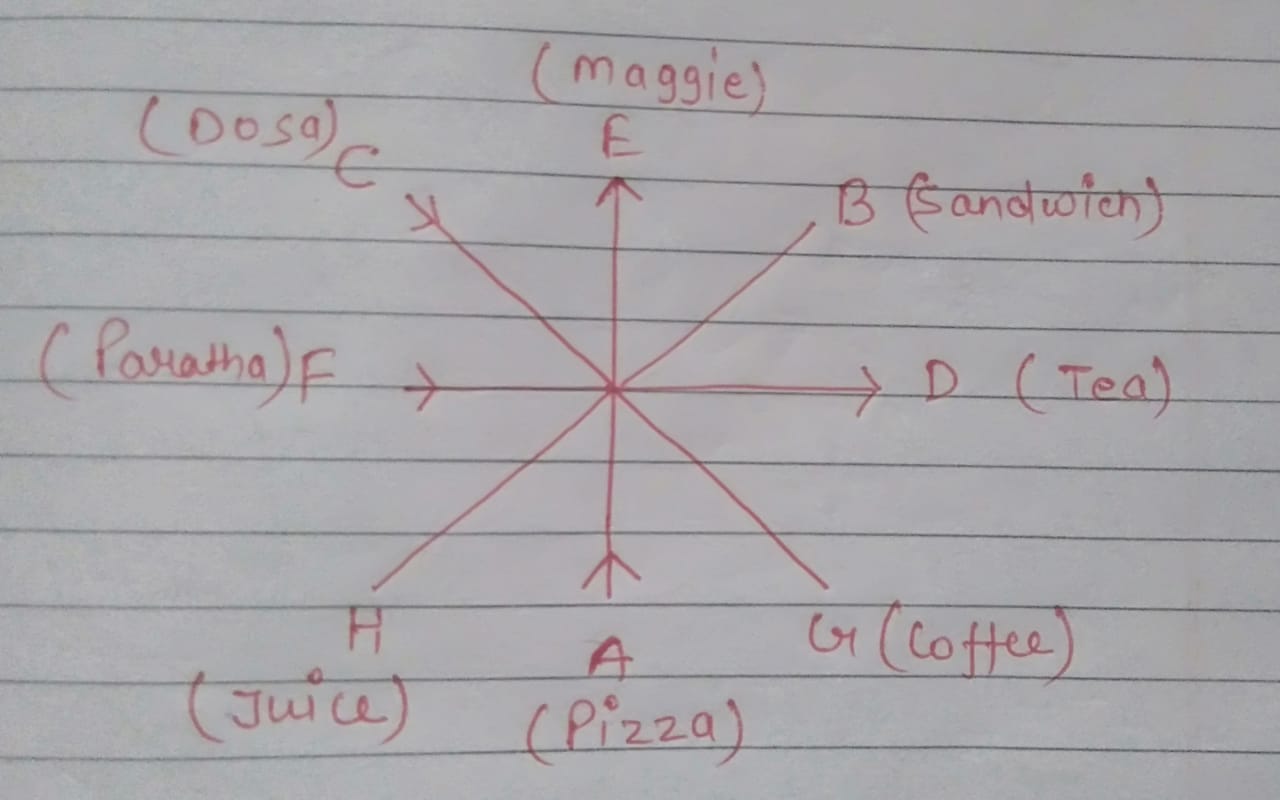 (Maggie)
E
(Dosa) C
B (Sandwich)
(Paratha) F
D (Tea)
H
(Juice)
A
(Pizza)
G (Coffee)